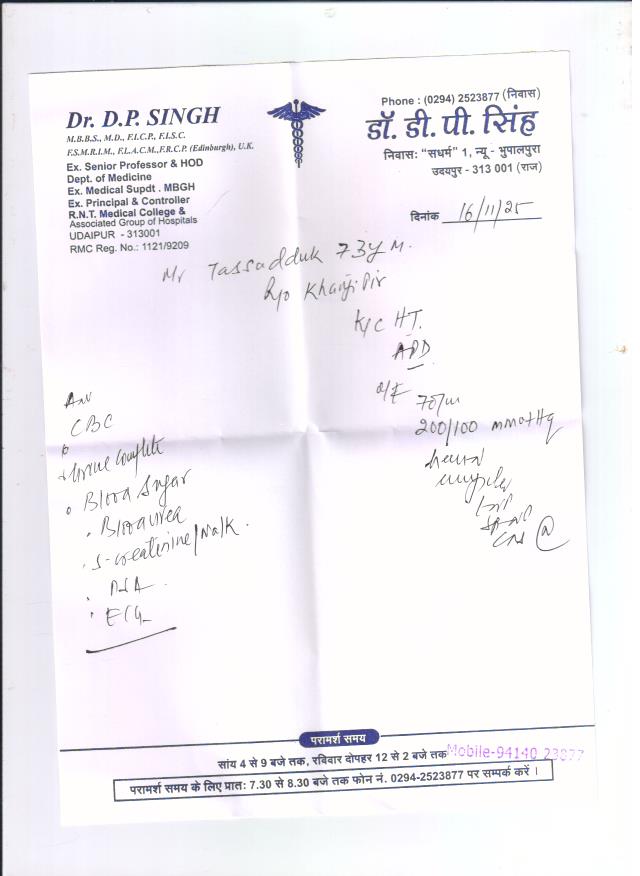 Dr. D.P. SINGH
M.B.B.S., M.D., F.I.C.P., F.I.S.C.
F.S.M.R.I.M., F.L.A.C.M.,F.R.C.P. (Edinburgh), U.K.
Ex. Senior Professor & HOD
Dept. of Medicine
Ex. Medical Supdt . MBGH
Ex. Principal & Controller
R.N.T. Medical College &
Associated Group of Hospitals
UDAIPUR - 313001
RMC Reg. No.: 1121/9209
Phone : (0294) 2523877 (निवास)
डॉ. डी. पी. सिंह
निवास: “सधर्म” 1, न्यू - भुपालपुरा
उदयपुर - 313 001 (राज)
दिनांक 16/11/25
Mr Tassadduk 73y M.
R/o Khanjipir
K/C HT.
O/E
200/100 mmHg
CBC
Urine Complete
Blood Sugar
Blood urea
S-creatinine/Na/K.
ECG
परामर्श समय
सांय 4 से 9 बजे तक, रविवार दोपहर 12 से 2 बजे तक Mobile-94140 23877
परामर्श समय के लिए प्रातः 7.30 से 8.30 बजे तक फोन नं. 0294-2523877 पर सम्पर्क करें ।